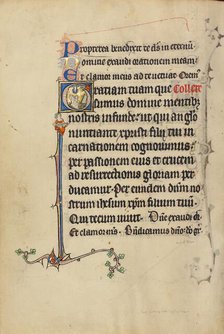 Propterea benedixit te deus in eternum
Domine exaudi orationem meam
Et clamor meus ad te ueniat Oremus
Gratiam tuam que Collecta
sumus domine mentibus
nostris infunde ut qui an
nuntiante xpisti filii tui in
carnationem cognouimus
per passionem eius et crucem
ad resurrectionis gloriam per
ducamur Per eundem dominum no
strum ihesum xpistum filium tuum
Qui tecum uiuit Domine exaudi or
Et clamor meus Benedicamus domino deo gra